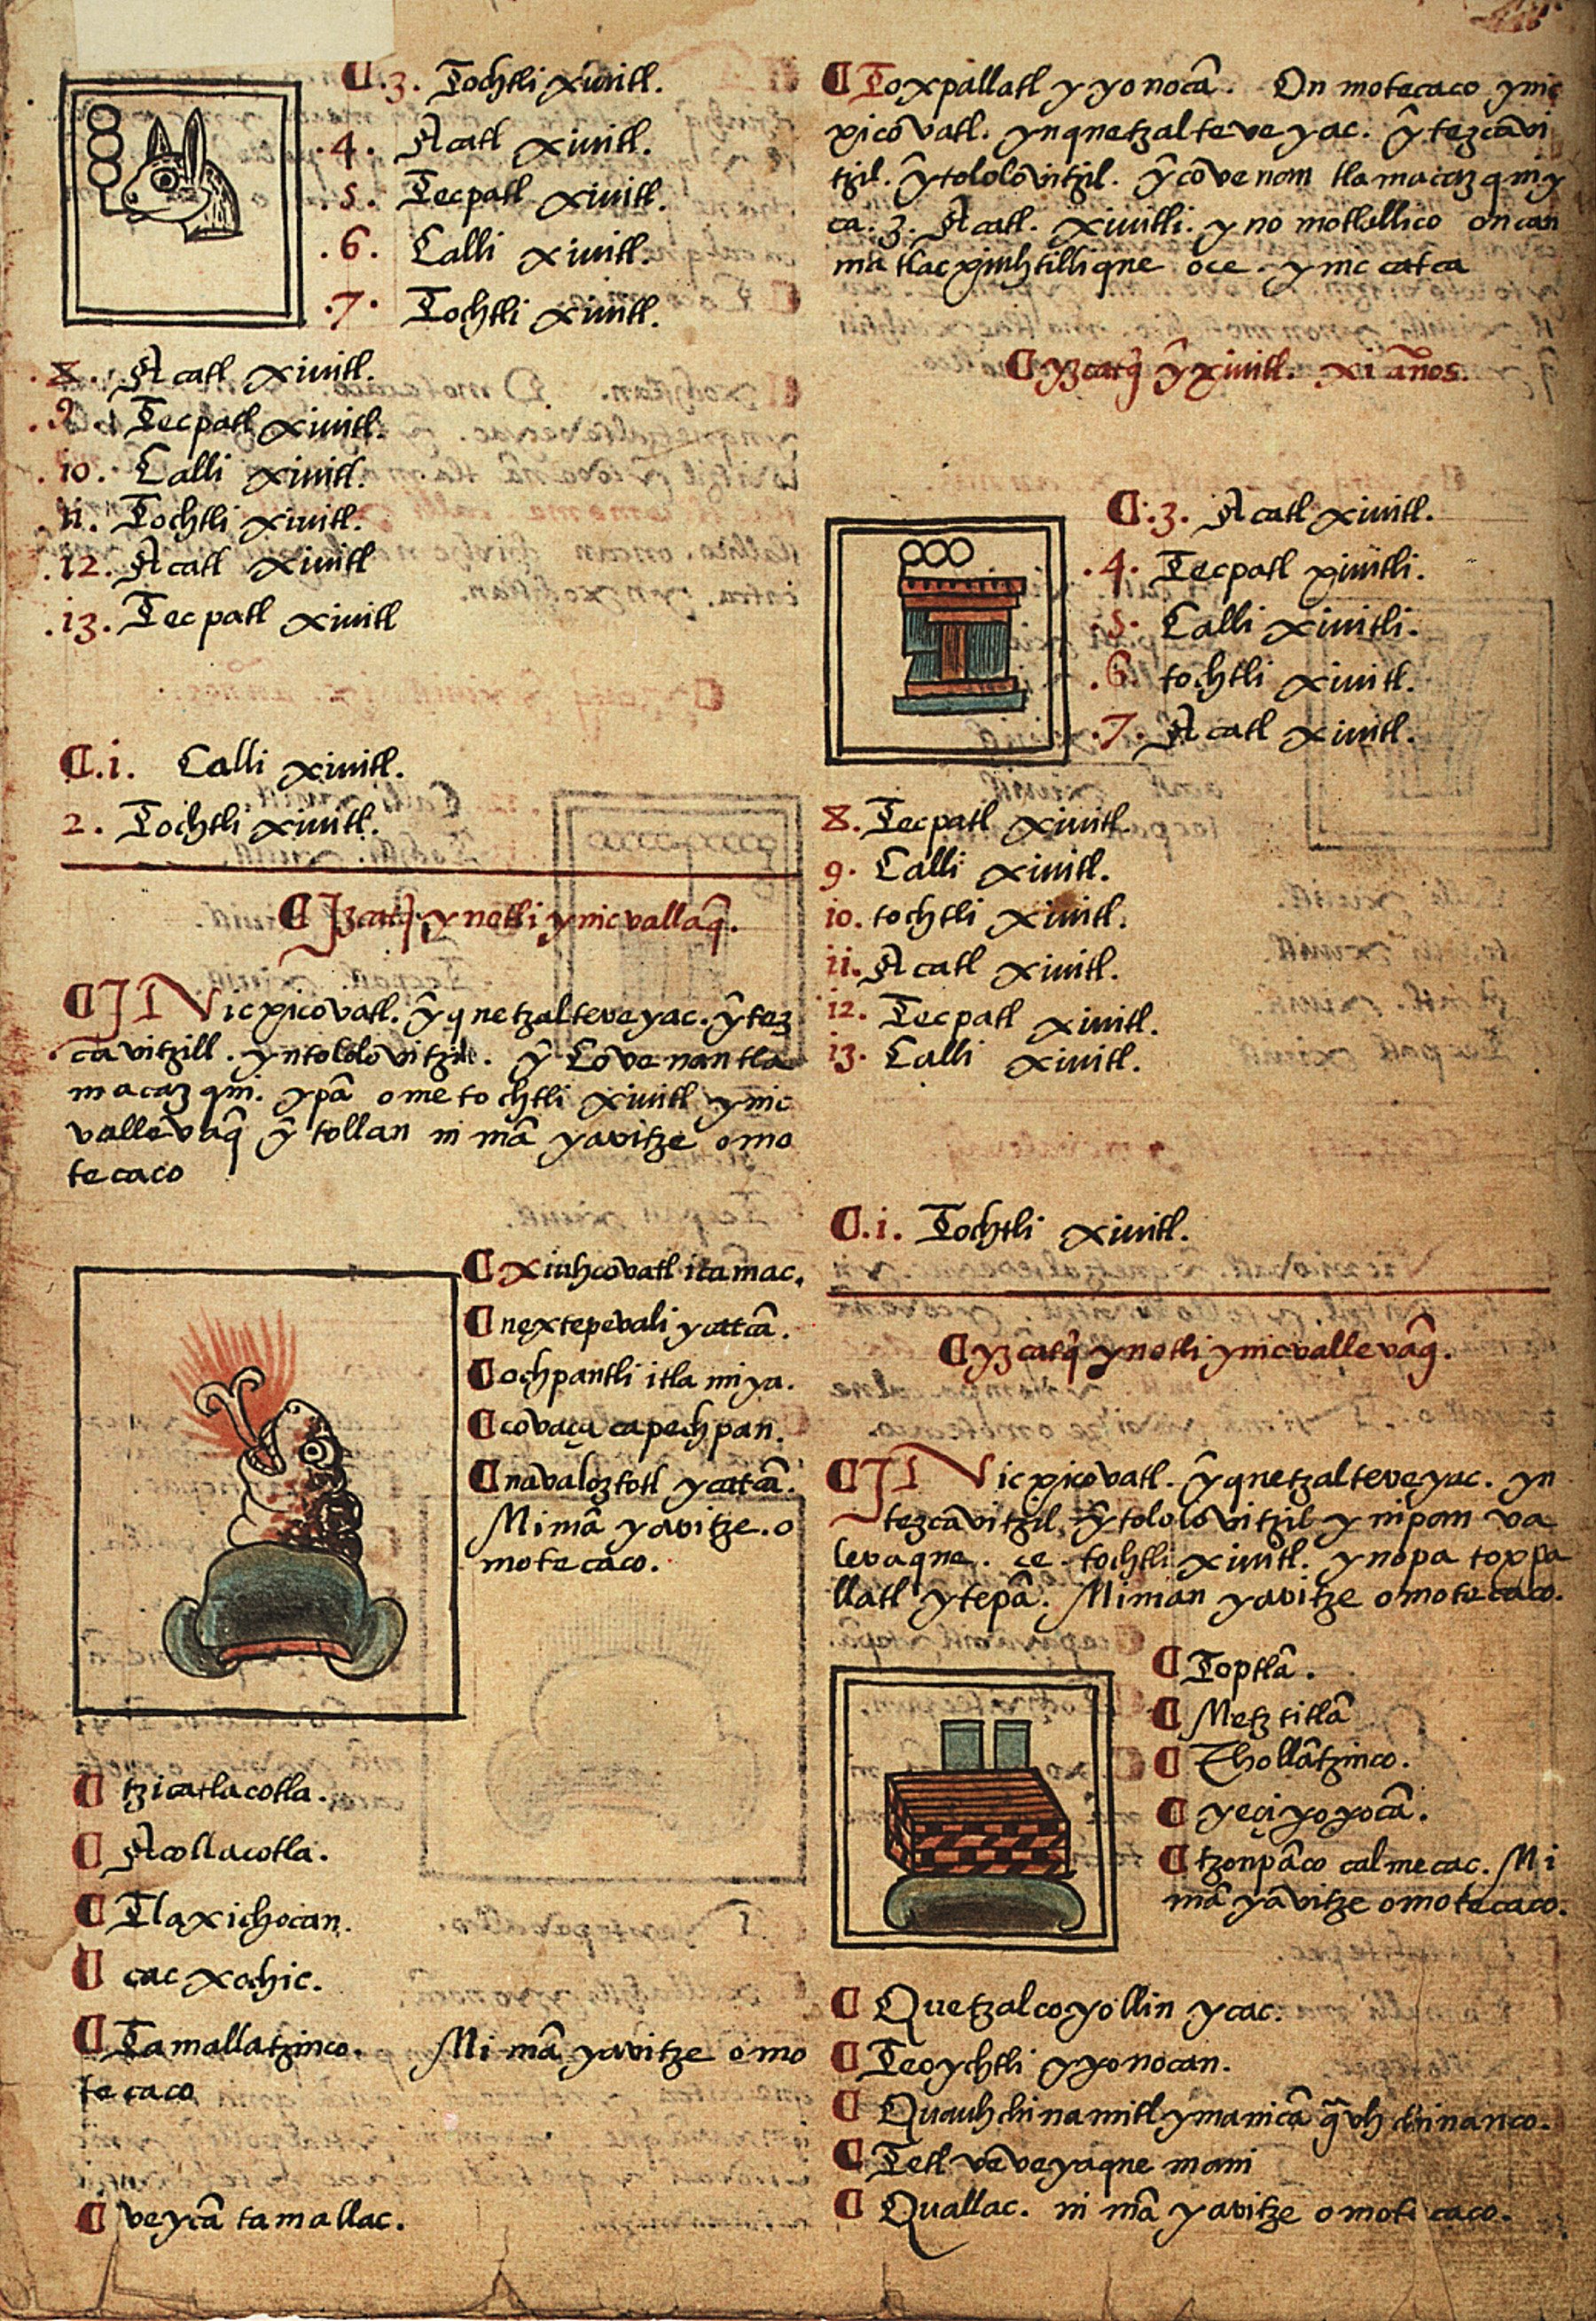 .3. Tochtli xiuitl.
.4. Acatl xiuitl.
.5. Tecpatl xiuitl.
.6. Calli xiuitl.
.7. Tochtli xiuitl.
.8. Acatl xiuitl.
.9. Tecpatl xiuitl.
.10. Calli xiuitl.
.11. Tochtli xiuitl.
.12. Acatl xiuitl
.13. Tecpatl xiuitl
.1. Calli xiuitl.
2. Tochtli xiuitl.
Izcatq̃ y notli ynic vallaq̃.
INic xicovatl. ỹ quetzalteveyac. ỹ tez
cavitzill. yntololovitzil. ỹ Covenantla
macazqui. ypã ometochtli xiuitl ynic
vallevaq̃ ỹ tollan nimã yavitze omo
tecaco
xiuhcovatl itamac.
nextepevali ycatcã.
ochpantli itlamiya.
covaçacapechpan.
navaloztotl ycatcã.
Nimã yavitze. o
motecaco.
tzicatlacotla.
Acollacotla.
Tlaxichocan.
cacxochic.
Tamallatzinco. Nimã yavitze omo
tecaco
veycã tamallac.
Toxpallatl yyonocã. On motecaco ynic
xicõvatl. ynquetzalteveyac. ỹ tezcavi
tzil. ỹ tololovitzil. ỹ cõvenan tlamacazqui y
ca. 3. Acatl. xiuitli. yno motlallico oncan
matlacxiuhtillique oce. ynic catca
yzcatq̃ ỹ xiuitl. xi años.
.3. Acatl xiuitl.
.4. Tecpatl xiuitli.
.5. Calli xiuitli.
.6. tochtli xiuitl.
.7. Acatl xiuitl.
8. Tecpatl xiuitl.
9. Calli xiuitl.
10. tochtli xiuitl.
11. Acatl xiuitl.
12. Tecpatl xiuitl.
13. Calli xiuitl.
.1. Tochtli xiuitl.
yzcatq̃ ynotli ynic vallevaq̃.
INic xicovatl. ỹ quetzalteveyac. yn
tezcãvitzil, ỹ tololovitzil ynipan va
levaque. ce. tochtli xiuitl. ynopa toxpa
llatl ytepã. Niman yavitze omotecaco.
Toptlã.
Metztitlã
Thollãtzinco.
yeçiyoyocã.
tzonpãco calmecac. Ni
mã yavitze omotecaco.
Quetzalcoyollin ycac.
Teoychtli yyonocan.
Quauhchinamitl ymanicã q̃vhchinanco.
Tetl veveyaque mani
Quallac. nimã yavitze omotecaco.